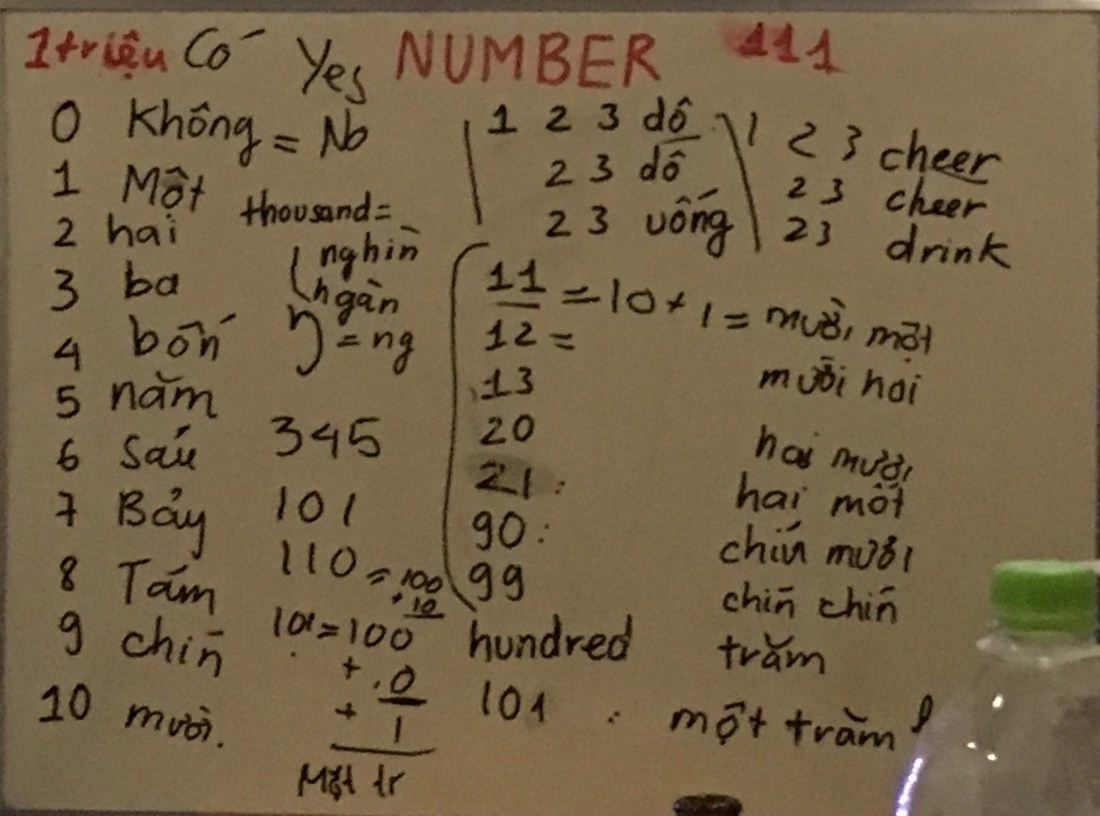 1 triệu Có Yes NUMBER 111
0 Không = No
1 Một
2 hai
3 ba
4 bốn
5 năm
6 Sáu
7 Bảy
8 Tám
9 chín
10 mười.
thousand =
nghìn
ngàn
= ng
345
101
110 = 100
+ 10
101 = 100
+ 0
+ 1
Một tr
1 2 3 dô
2 3 dô
2 3 uống
1 2 3 cheer
2 3 cheer
2 3 drink
11 = 10 + 1 = mười một
12 = mười hai
13
20 hai mươi
21 : hai mốt
90 : chín mươi
99 chín chín
hundred trăm
101 : một trăm